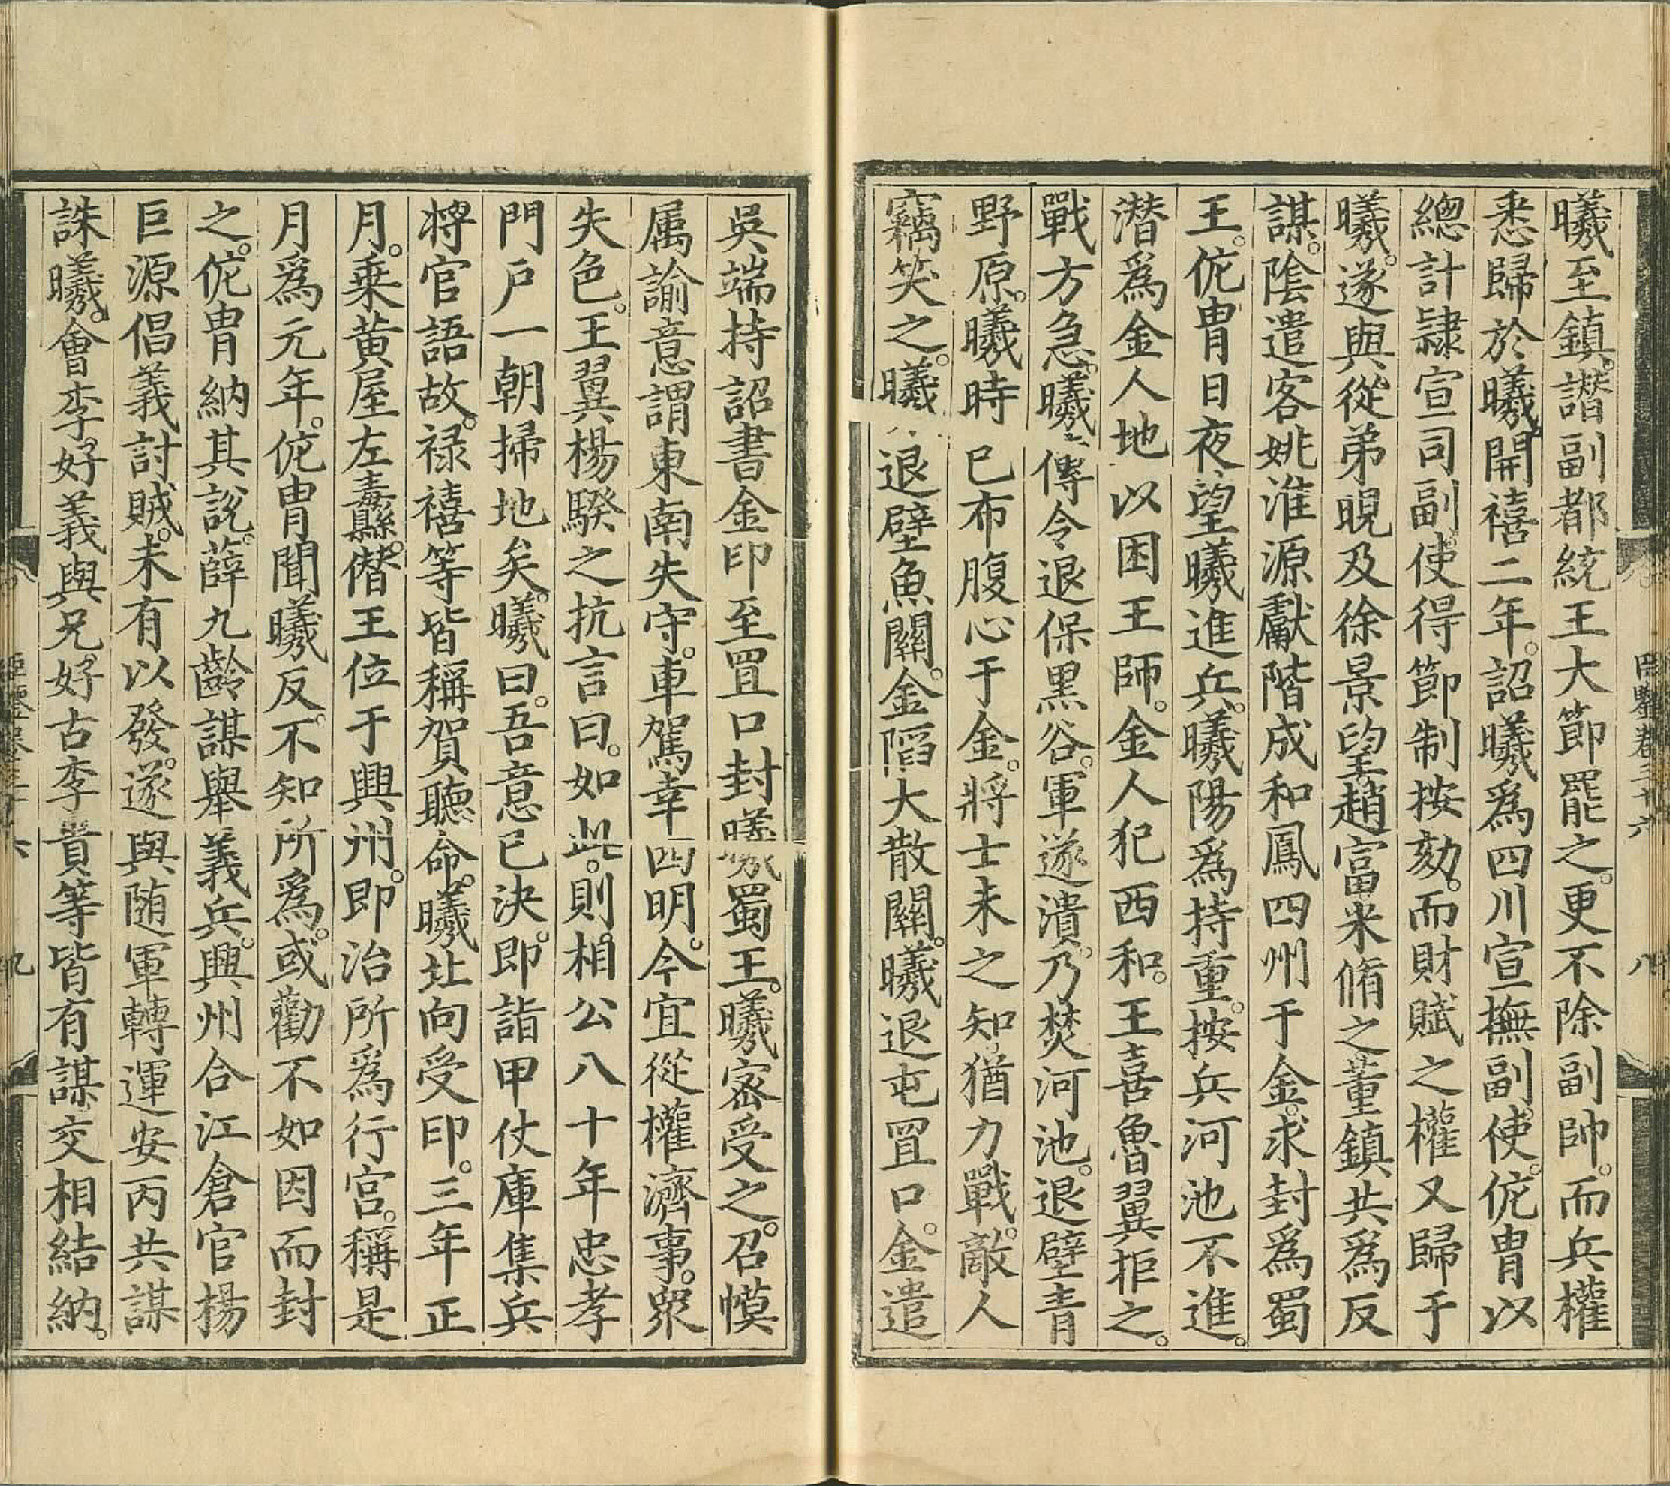 曦至鎮。譛副都統王大節罷之。更不除副帥。而兵權
悉歸於曦。開禧二年。詔曦爲四川宣撫副使。侂冑以
總計隷宣司。副使得節制按劾。而財賦之權又歸于
曦。遂與從弟晛及徐景望趙富米脩之董鎮共爲反
謀。陰遣客姚淮源獻階成和鳳四州于金。求封爲蜀
王。侂冑日夜望曦進兵。曦陽爲持重。按兵河池不進。
潛爲金人地以困王師。金人犯西和。王喜魯翼拒之。
戰方急。曦傳令退保黑谷。軍遂潰。乃焚河池。退壁青
野原。曦時已布腹心于金。將士未之知。猶力戰。敵人
竊笑之。曦退壁魚關。金䧟大散關。曦退屯罝口。金遣
吳端持詔書金印至罝口封曦蜀王。曦密受之。召幙
属諭意謂東南失守。車駕幸四明。今宜從權濟事。衆
失色。王翼楊騤之抗言曰。如此。則相公八十年忠孝
門戶一朝掃地矣。曦曰。吾意已決。即詣甲仗庫集兵
將官語故。禄禧等皆稱賀聽命。曦北向受印。三年正
月。乗黄屋左纛。僣王位于興州。即治所爲行宫。稱是
月爲元年。侂冑聞曦反。不知所爲。或勸不如因而封
之。侂冑納其說。薛九齡謀舉義兵。興州合江倉官楊
巨源倡義討賊。未有以發。遂與随軍轉運安丙共謀
誅曦。會李好義與兄好古李貴等皆有謀。交相結納。
八
九